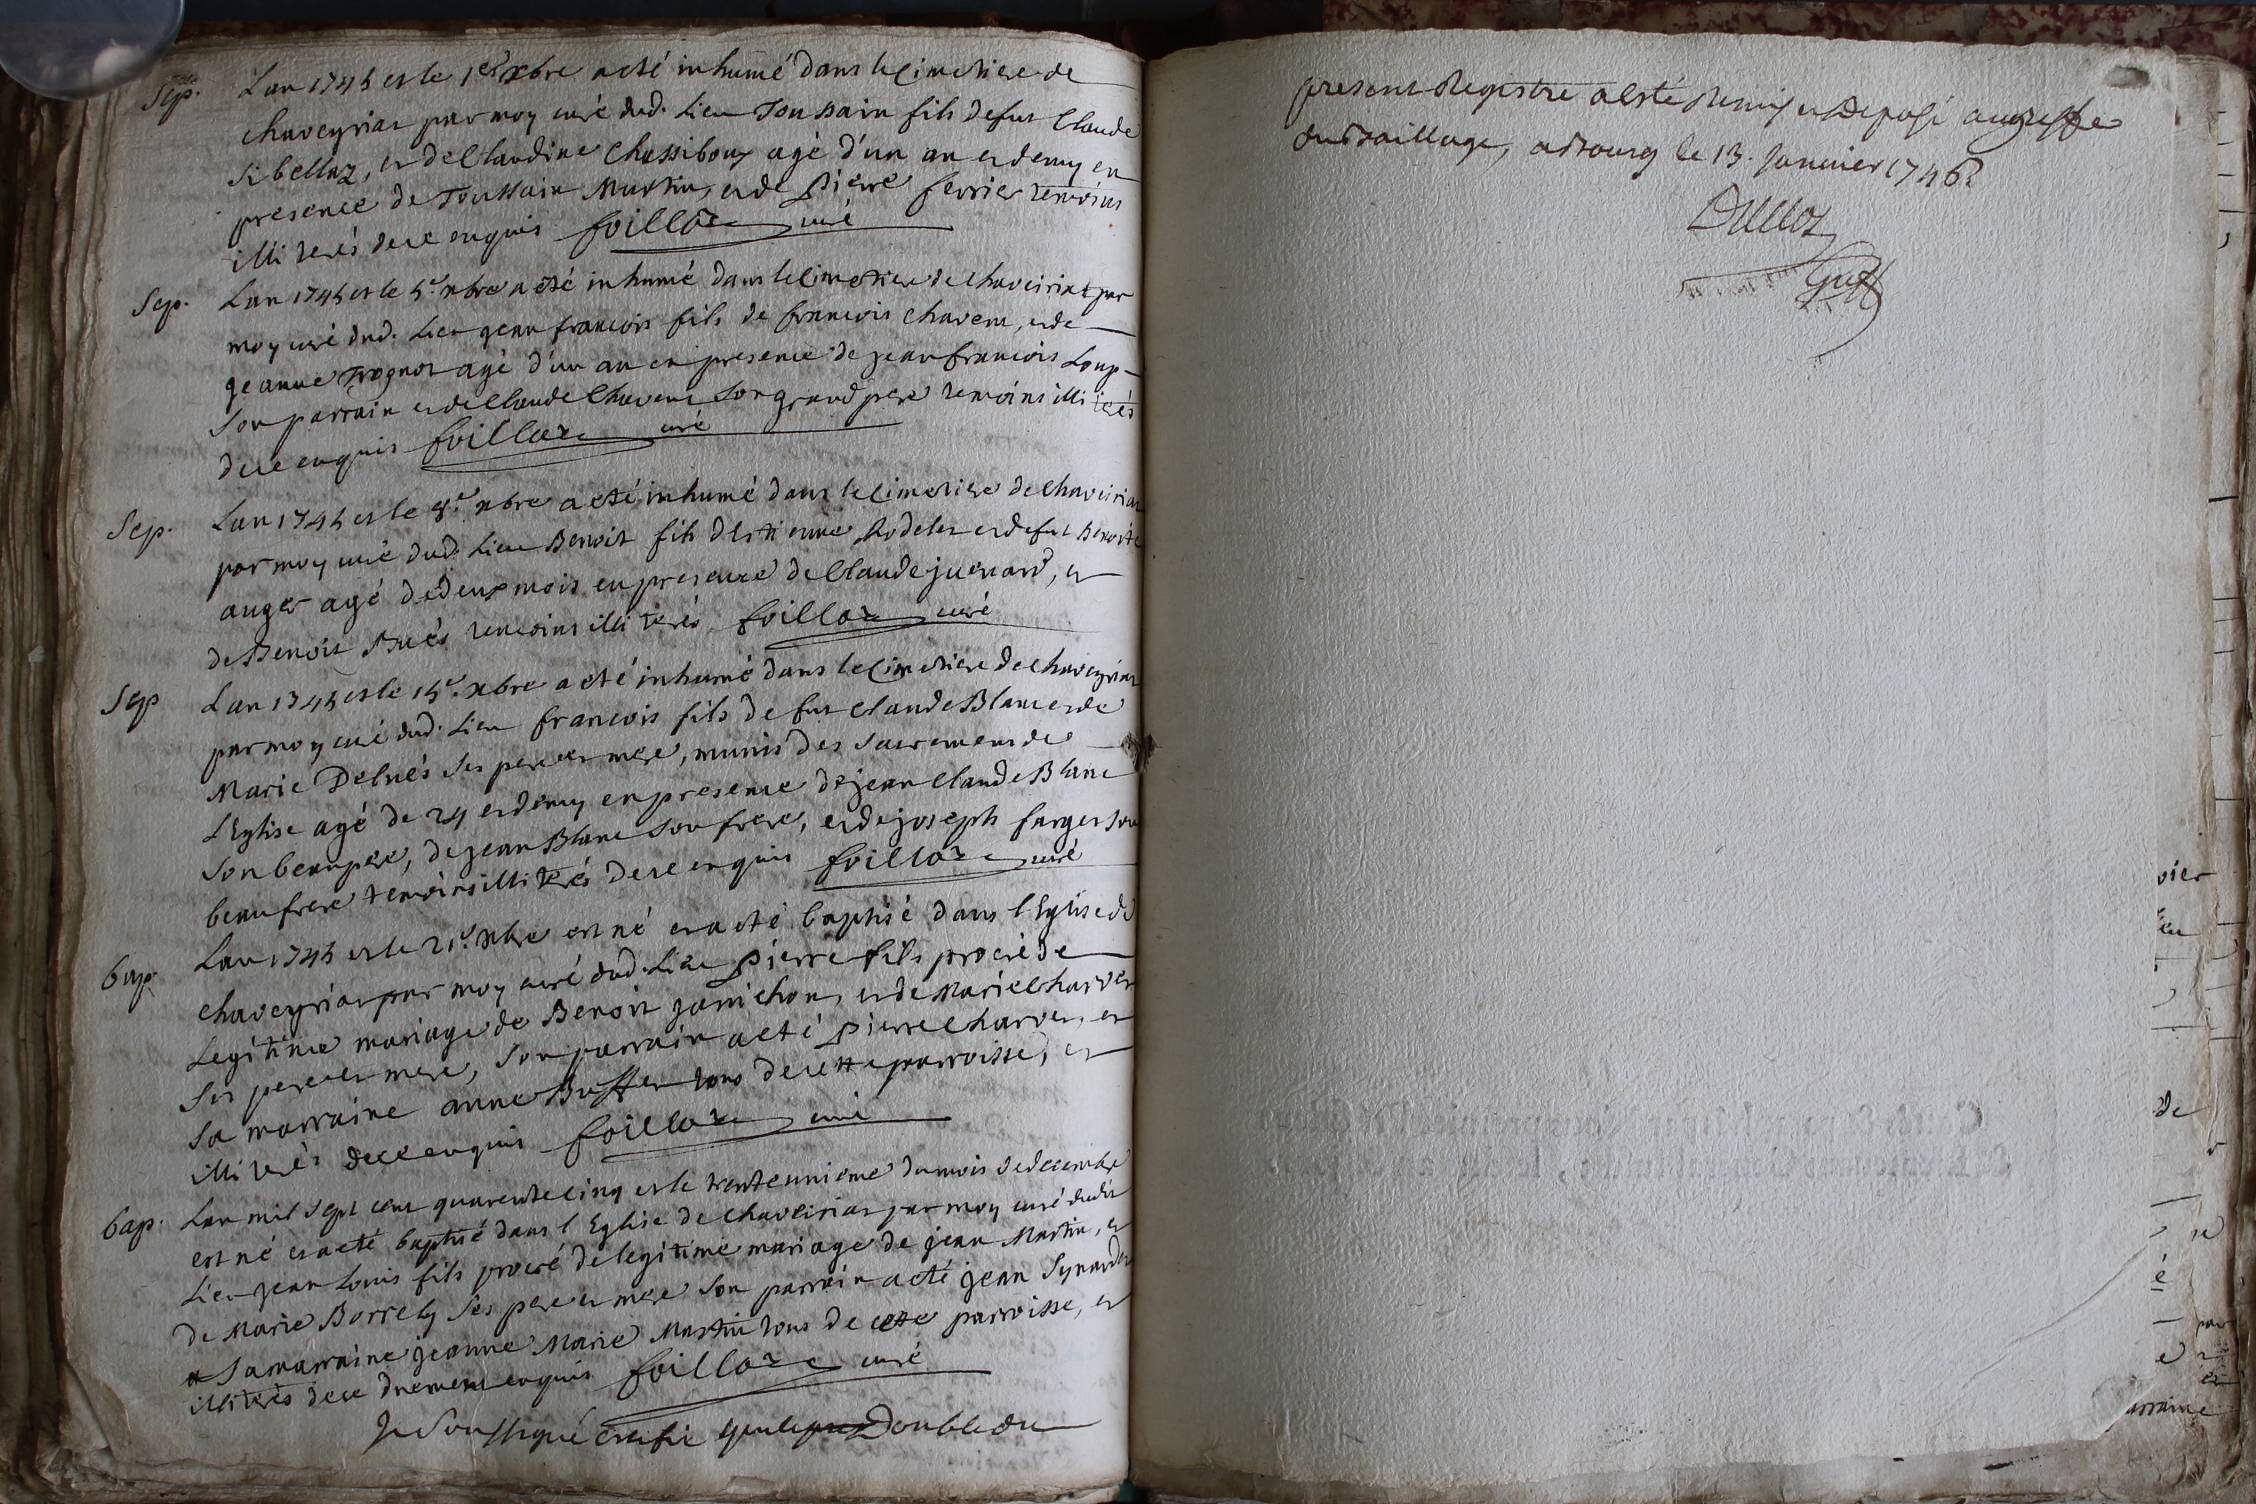 Sep. L'an 1745 et le 1er xbre a eté inhumé dans le cimetiere de
chaveyriat par moy curé dud. Lieu Toussain fils de fut Claude
Sibellaz, et de Claudine Chassiboux agé d'un an et demy en
presence de Toussain Martin, et de pierre fevrier temoins
illiterés de ce enquis foillard curé
Sep. L'an 1745 et le 5e. xbre a eté inhumé dans le cimetiere de chaveiriat par
moy curé dud. Lieu jean francois fils de francois chavent, et de
jeanne agé d'un an en presence de jean francois Loup
son parrain et de Claude Chavent son grand pere temoins illiterés
de ce enquis foillard curé
Sep. L'an 1745 et le 8e. xbre a eté inhumé dans le cimetiere de chaveiriat
par moy curé dud. Lieu Benoit fils d'Estienne Rodelet et de fut Benoite
auger agé de deux mois en presence de Claude juenard, et
de Benoit temoins illiterés foillard curé
Sep L'an 1745 et le 15e. xbre a eté inhumé dans le cimetiere de chaveyriat
par moy curé dud. Lieu francois fils de fut Claude Blanc et de
Marie ses pere et mere, munis des sacremens de
L'Eglise agé de 24 et demy en presence de jean Claude Blanc
son beaupere, de jean Blanc son frere, et de joseph farget son
beaufrere temoins illiterés de ce enquis foillard curé
bap. L'an 1745 et le 21e. xbre est né et a eté baptisé dans l'Eglise de
chaveyriat par moy curé dud. Lieu pierre fils procrée de
Legitime mariage de Benoit janichon, et de Marie Charvet
ses pere et mere, son parrain a eté pierre Charvet, et
sa marraine anne Buffet tous de cette parroisse, et
illiterés de ce enquis foillard curé
bap. L'an mil sept cent quarente cinq et le trente unieme du mois de decembre
est né et a eté baptisé dans l'Eglise de chaveiriat par moy curé dudit
Lieu jean Louis fils procrée de legitime mariage de jean Martin, et
de Marie Borrely ses pere et mere son parrain a eté jean
sa marraine jeanne Marie Martin tous de cette parroisse, et
illiterés de ce duement enquis foillard curé
Je soussigné certifie que le Double du
present Registre a esté Remis et Deposé au greffe
du Bailliage, a Bourg le 13. Janvier 1746
Greff